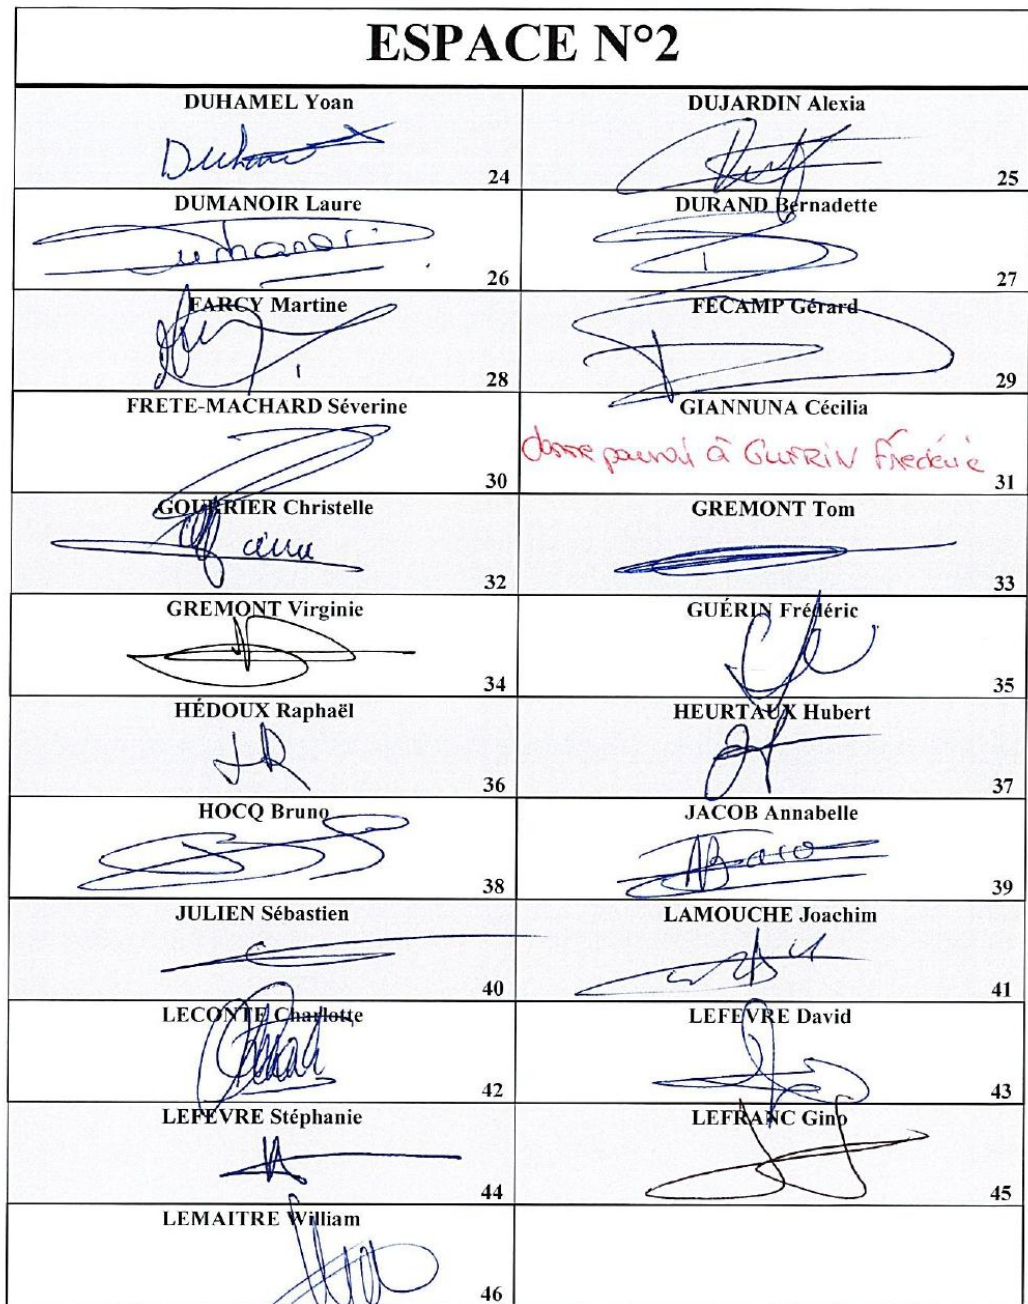 ESPACE N°2
DUHAMEL Yoan
24
DUJARDIN Alexia
25
DUMANOIR Laure
26
DURAND Bernadette
27
FARCY Martine
28
FECAMP Gérard
29
FRETE-MACHARD Séverine
30
GIANNUNA Cécilia
donne pouvoir à GUERIN Frédéric
31
GOURRIER Christelle
32
GREMONT Tom
33
GREMONT Virginie
34
GUÉRIN Frédéric
35
HÉDOUX Raphaël
36
HEURTAUX Hubert
37
HOCQ Bruno
38
JACOB Annabelle
39
JULIEN Sébastien
40
LAMOUCHE Joachim
41
LECONTE Charlotte
42
LEFEVRE David
43
LEFEVRE Stéphanie
44
LEFRANC Gino
45
LEMAITRE William
46